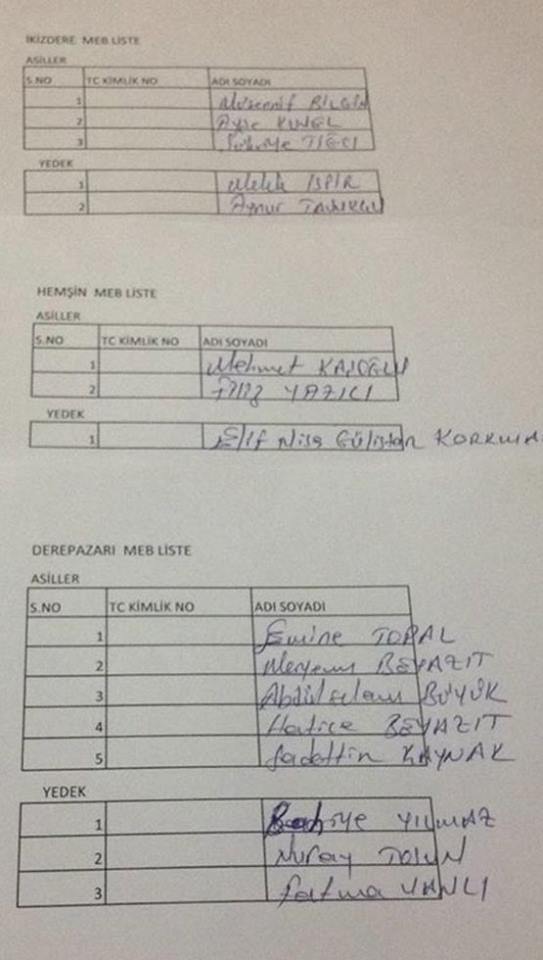 İKİZDERE MEB LİSTE
ASİLLER
S.NO TC KİMLİK NO ADI SOYADI
1 BİLGİN
2 Ayşe
3
YEDEK
1 Melek İSPİR
2 Aynur
HEMŞİN MEB LİSTE
ASİLLER
S.NO TC KİMLİK NO ADI SOYADI
1 Mehmet
2 Filiz YAZICI
YEDEK
1 Elif Nisa Gülistan
DEREPAZARI MEB LİSTE
ASİLLER
S.NO TC KİMLİK NO ADI SOYADI
1 Emine TOPAL
2 Meryem BEYAZIT
3 Abdülselam BÜYÜK
4 Hatice BEYAZIT
5 Sadettin KAYNAK
YEDEK
1 YILMAZ
2 Nuray
3 Fatma